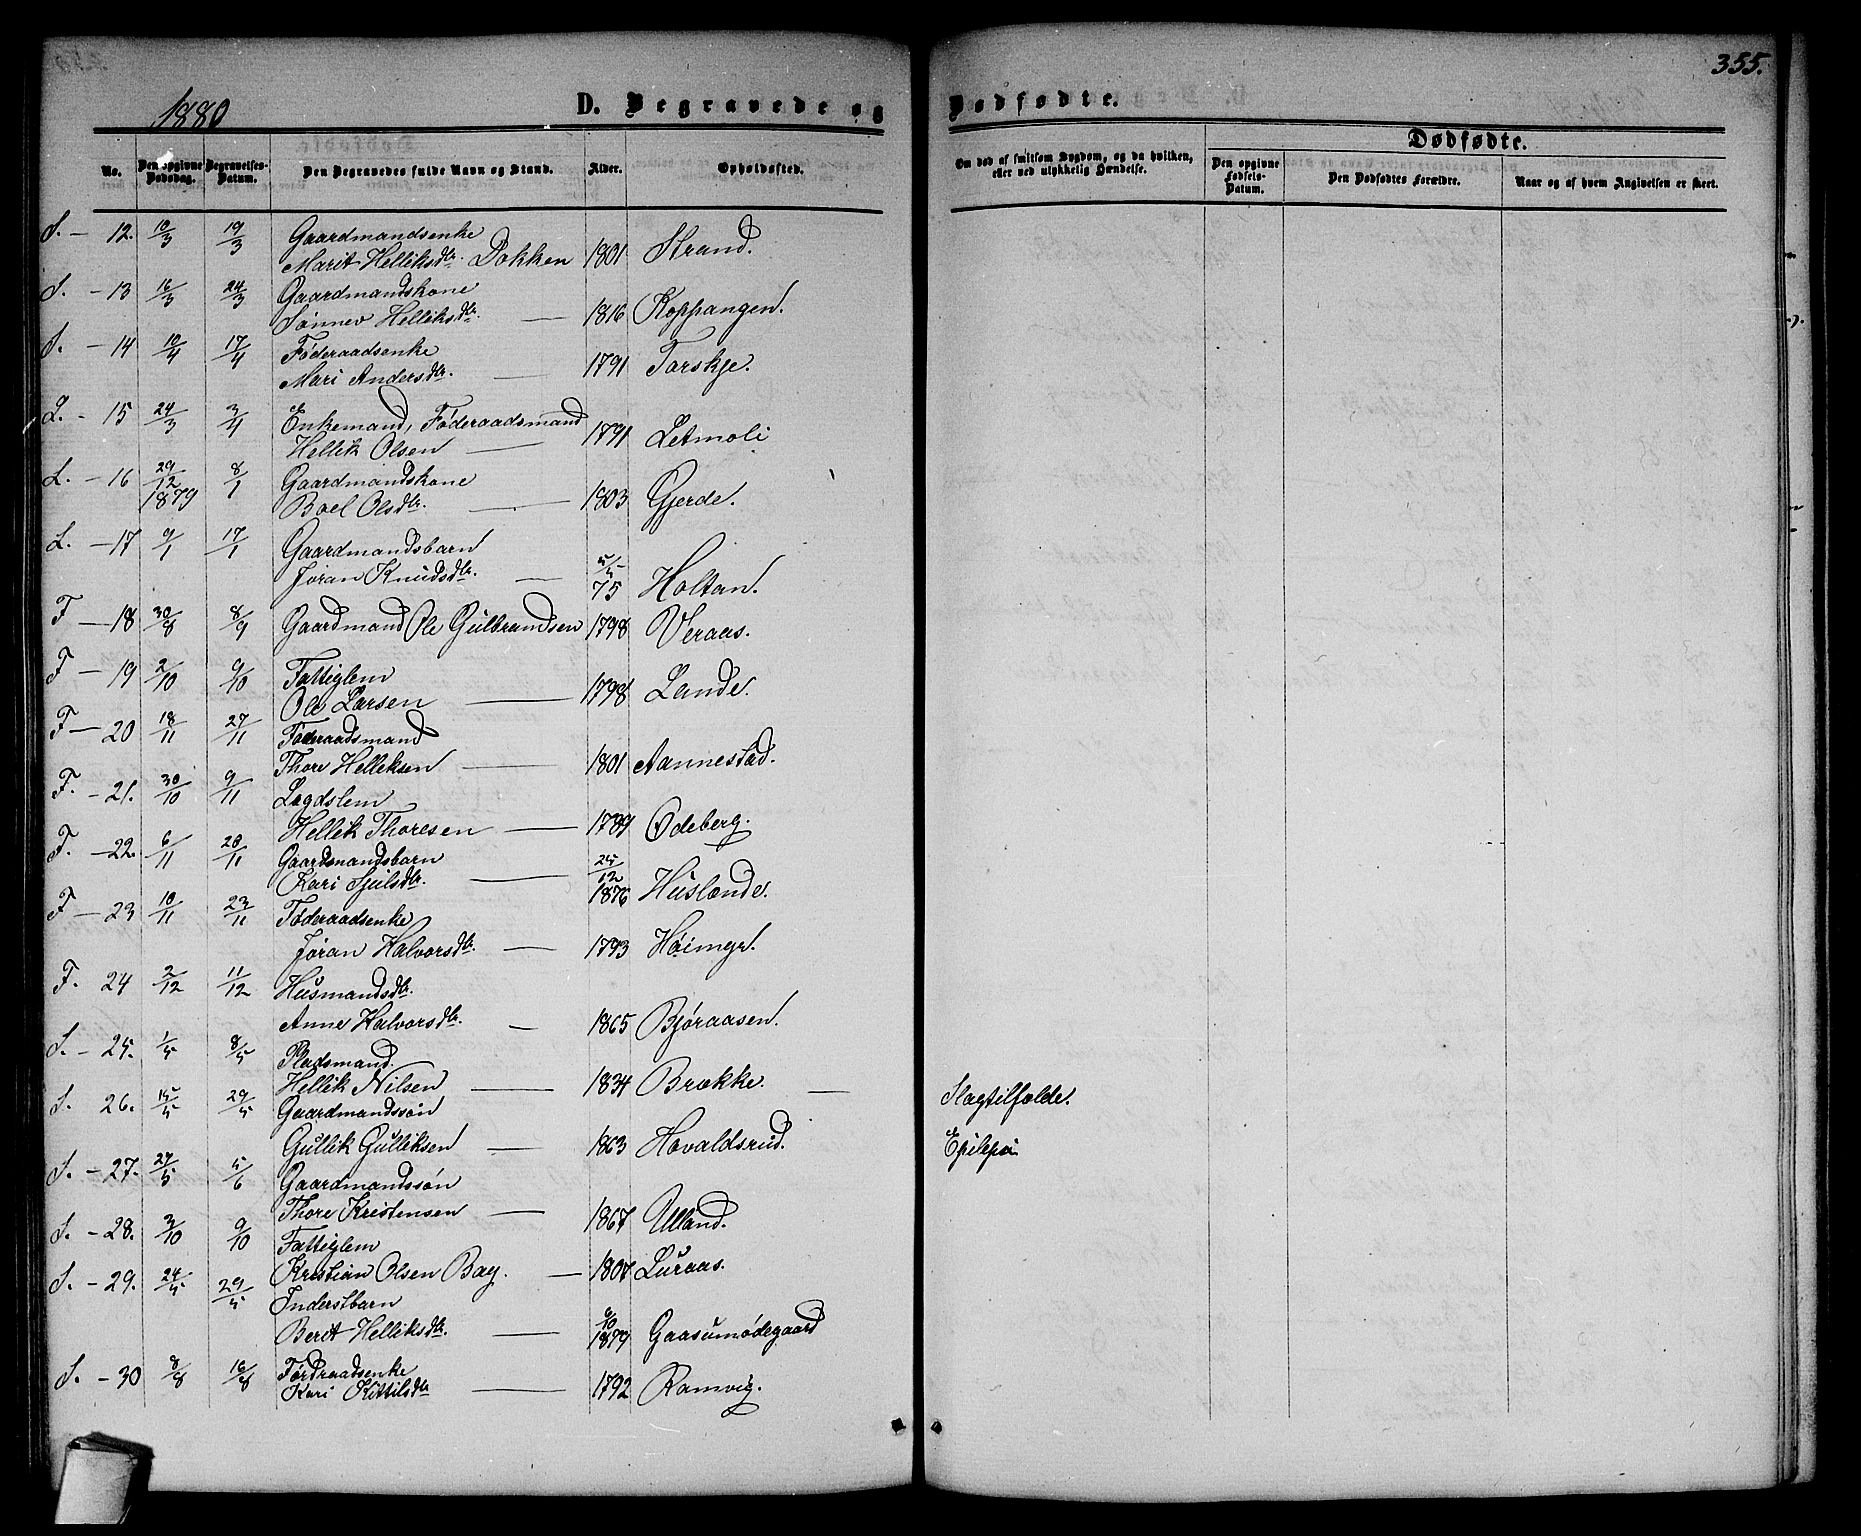 355.
1880
D. Begravede og Dødfødte.
No. Den opgivne Dødsdag. Begravelses-Datum. Den Begravedes fulde Navn og Stand. Alder. Opholdssted. Om død af smitsom Sygdom, og da hvilken, eller ved ulykkelig Hændelse.
Dødfødte.
Den opgivne Fødsels-Datum. Den Dødfødtes Forældre. Naar og af hvem Angivelsen er skeet.
S. - 12. 10/3 19/3 Gaardmandsenke
Marit Helliksdtr. Dokken 1801 Strand.
S. - 13 16/3 24/3 Gaardmandskone
Sønnev Helliksdtr. — 1816 Koppangen.
S. - 14 10/4 17/4 Føderaadsenke
Mari Andersdtr. — 1791 Torskje.
L. - 15 24/3 3/4 Enkemand, Føderaadsmand
Hellik Olsen — 1791 Letmoli
L. - 16 29/12 1879 8/1 Gaardmandskone
Boel Olsdtr. — 1803 Gjerde.
L. - 17 9/1 17/1 Gaardmandsbarn
Jøran Knudsdtr. — 5/5 75 Holtan.
F - 18 30/8 8/9 Gaardmand Ole Gulbrandsen 1798 Veraas.
F - 19 2/10 9/10 Fattiglem
Ole Larsen — 1798 Lande.
F - 20 18/11 27/11 Føderaadsmand
Thore Helleksen — 1801 Aannestad.
F. - 21. 30/10 9/11 Lægdslem
Hellik Thoresen — 1789 Ødeberg.
F. - 22. 6/11 20/11 Gaardsmandsbarn
Kari Sjulsdtr. — 25/12 1876 Huslende.
F - 23 10/11 23/11 Føderaadsenke
Jøran Halvorsdtr. — 1793 Høimyr.
F. 24 2/12 11/12 Husmandsdtr.
Anne Halvorsdtr. — 1865 Bjøraasen.
S. - 25. 1/5 8/5 Pladsmand.
Hellik Nilsen — 1834 Brække. — Slagtilfælde.
S. 26. 15/5 29/5 Gaardmandssøn
Gullik Gulliksen — 1863 Hovaldsrud. Epilepsi
S. - 27. 27/5 5/6 Gaardmandssøn
Thore Kristensen — 1867 Ulland.
S. - 28. 3/10 9/10 Fattiglem
Kristian Olsen Bay. — 1807 Luraas.
S. - 29. 24/5 29/5 Inderstbarn
Berit Helliksdtr. — 6/10 1879 Gaasumødegaard
S. - 30 8/8 16/8 Førdraadsenke
Kari Kittilsdtr — 1792 Ramvig.